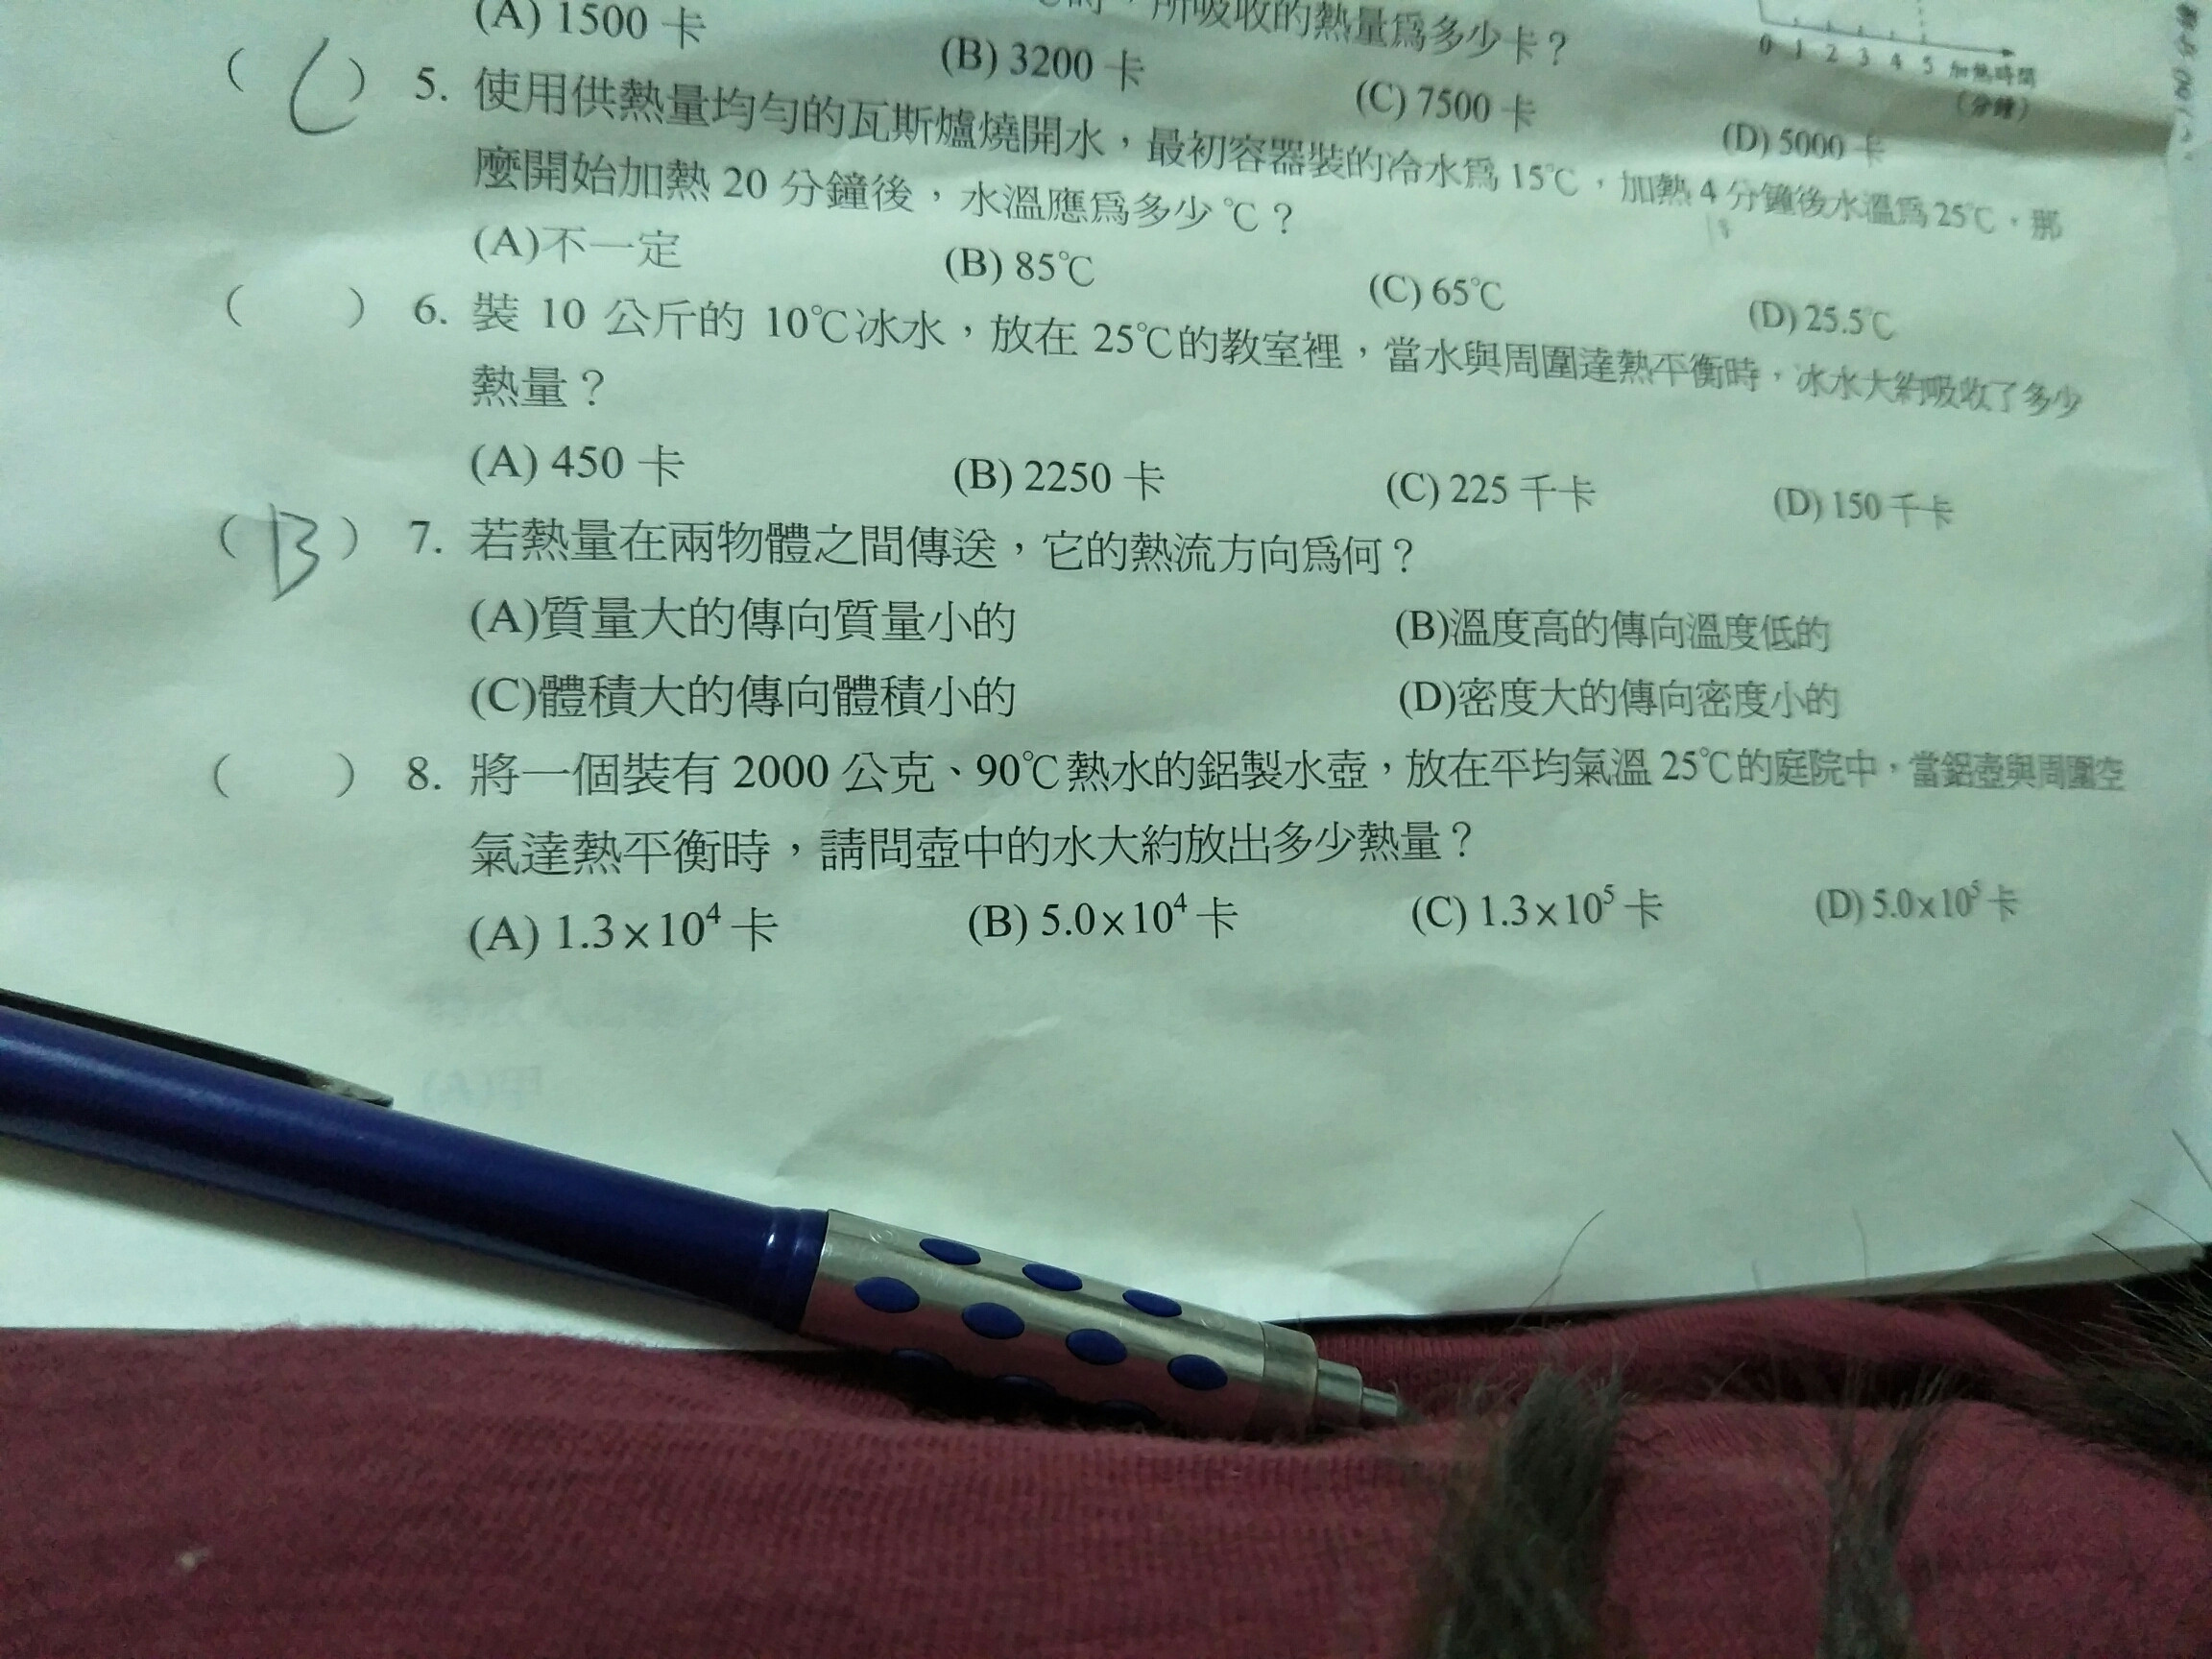 時，所吸收的熱量爲多少卡？
(A) 1500 卡 (B) 3200 卡 (C) 7500 卡 (D) 5000 卡
0 1 2 3 4 5 加熱時間
(分鐘)
( C ) 5. 使用供熱量均勻的瓦斯爐燒開水，最初容器裝的冷水爲 15℃，加熱 4 分鐘後水溫爲 25℃，那
麼開始加熱 20 分鐘後，水溫應爲多少 ℃？
(A)不一定 (B) 85℃ (C) 65℃ (D) 25.5℃
( ) 6. 裝 10 公斤的 10℃冰水，放在 25℃的教室裡，當水與周圍達熱平衡時，冰水大約吸收了多少
熱量？
(A) 450 卡 (B) 2250 卡 (C) 225 千卡 (D) 150 千卡
( B ) 7. 若熱量在兩物體之間傳送，它的熱流方向爲何？
(A)質量大的傳向質量小的 (B)溫度高的傳向溫度低的
(C)體積大的傳向體積小的 (D)密度大的傳向密度小的
( ) 8. 將一個裝有 2000 公克、90℃熱水的鋁製水壺，放在平均氣溫 25℃的庭院中，當鋁壺與周圍空
氣達熱平衡時，請問壺中的水大約放出多少熱量？
(A) 1.3×10⁴ 卡 (B) 5.0×10⁴ 卡 (C) 1.3×10⁵ 卡 (D) 5.0×10⁵ 卡